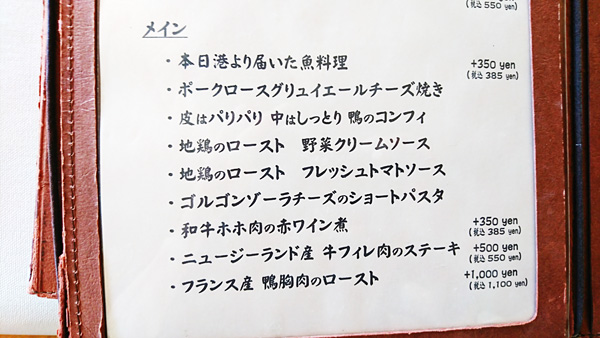 (税込 550 yen)
メイン
・本日港より届いた魚料理 +350 yen
(税込 385 yen)
・ポークロースグリュイエールチーズ焼き
・皮はパリパリ 中はしっとり 鴨のコンフィ
・地鶏のロースト 野菜クリームソース
・地鶏のロースト フレッシュトマトソース
・ゴルゴンゾーラチーズのショートパスタ
・和牛ホホ肉の赤ワイン煮 +350 yen
(税込 385 yen)
・ニュージーランド産 牛フィレ肉のステーキ +500 yen
(税込 550 yen)
・フランス産 鴨胸肉のロースト +1,000 yen
(税込 1,100 yen)